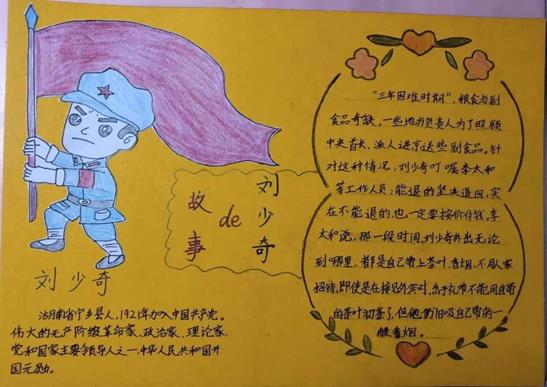 刘少奇
故事
de
刘少奇
湖南省宁乡县人,1921年加入中国共产党。
伟大的无产阶级革命家、政治家、理论家,
党和国家主要领导人之一,中华人民共和国开
国元勋。
“三年困难时期”,粮食与副
食品奇缺。一些地方负责人为了照顾
中央首长,派人进京送些副食品。针
对这种情况,刘少奇叮嘱李太和
等工作人员:能退的坚决退回,实
在不能退的也一定要按价付钱,李
太和说,那一段时间,刘少奇外出无论
到哪里,都是自己带上茶叶、香烟、不用人家
招待,即使是在接见外宾时,出于礼节不能用自带
的茶叶沏茶了,但他仍旧吸自己带的一
般香烟。